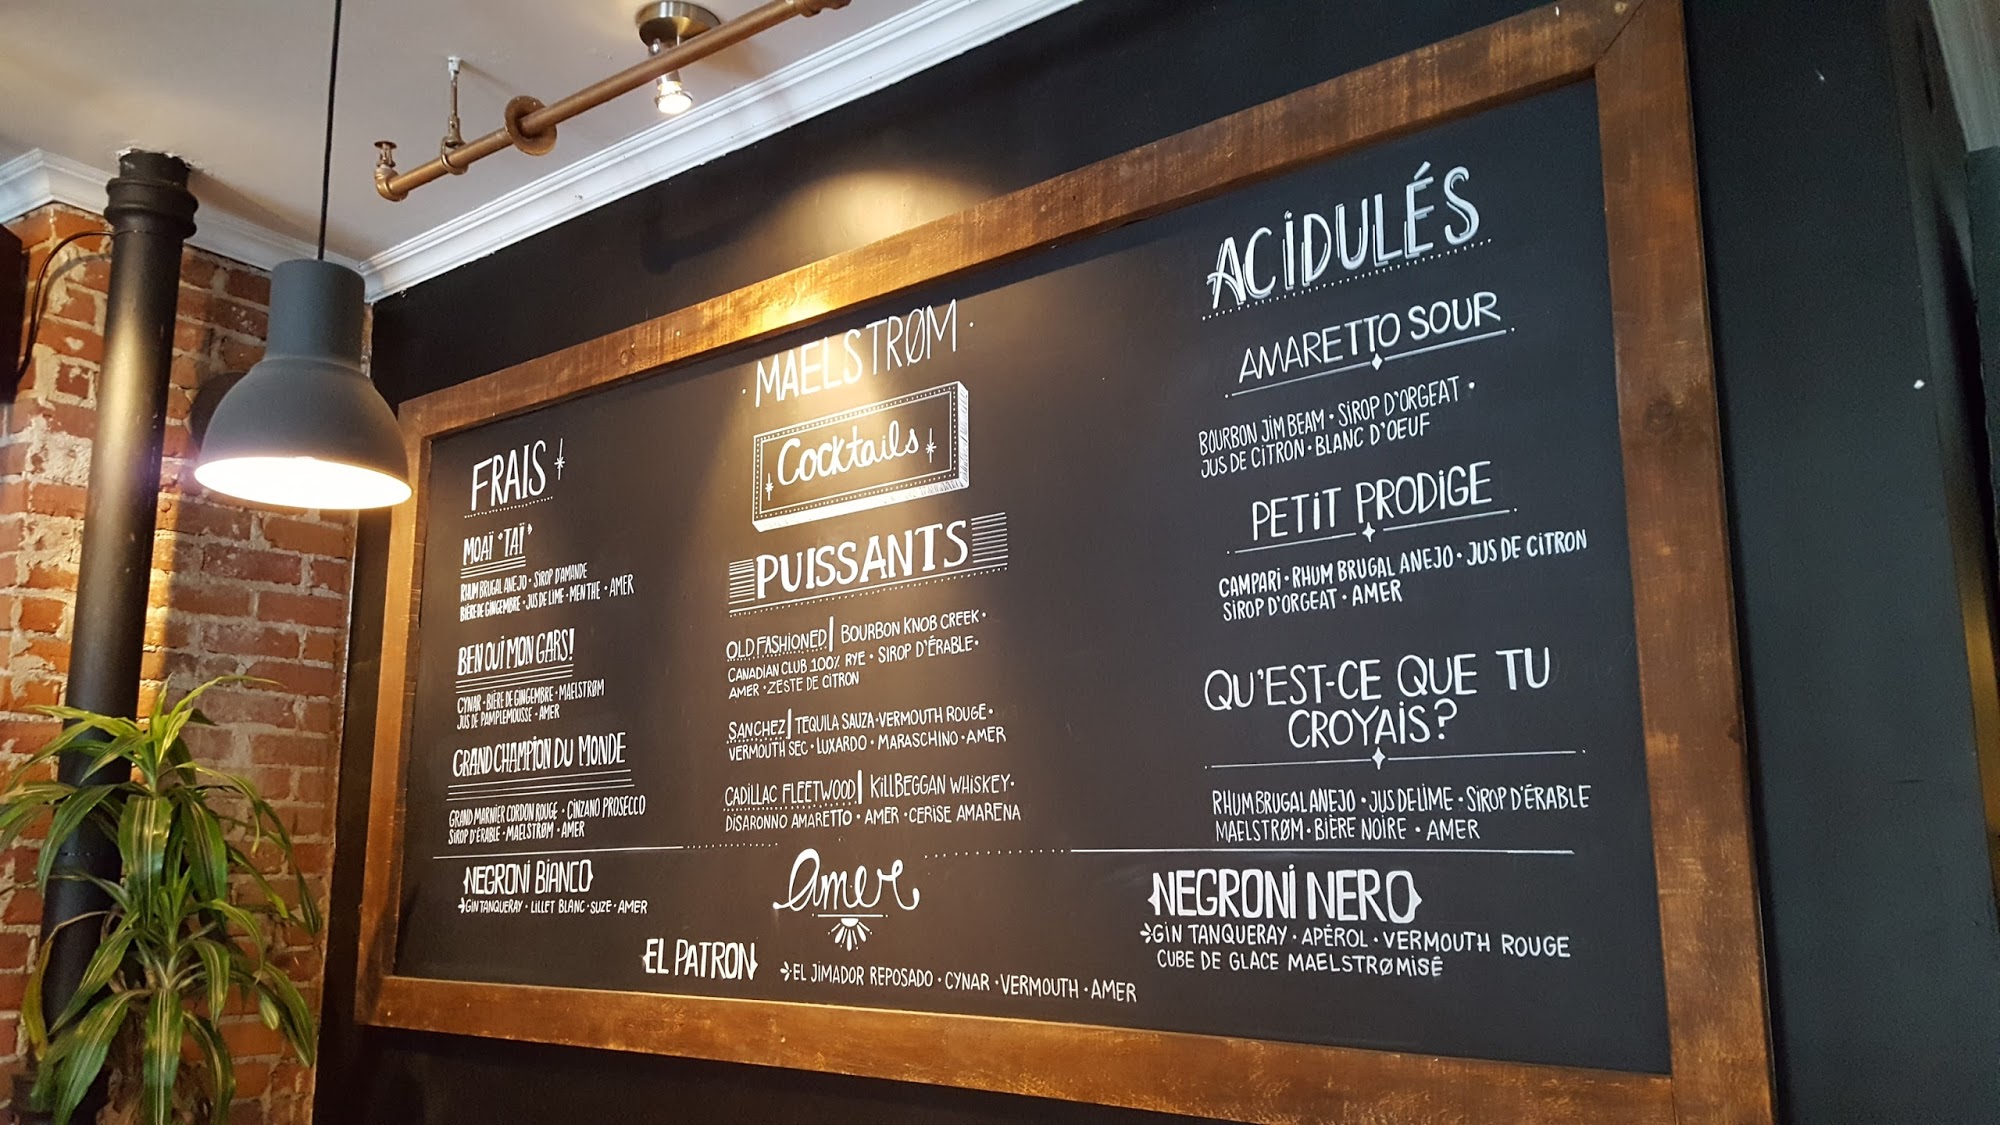 MAELSTRØM
Cocktails
FRAIS
MOAÏ "TAÏ"
RHUM BRUGAL ANEJO · SIROP D'AMANDE
BIÈRE DE GINGEMBRE · JUS DE LIME · MENTHE · AMER
BEN OUI MON GARS!
CYNAR · BIÈRE DE GINGEMBRE · MAELSTRØM
JUS DE PAMPLEMOUSSE · AMER
GRAND CHAMPION DU MONDE
GRAND MARNIER CORDON ROUGE · CINZANO PROSECCO
SIROP D'ÉRABLE · MAELSTRØM · AMER
PUISSANTS
OLD FASHIONED | BOURBON KNOB CREEK ·
CANADIAN CLUB 100% RYE · SIROP D'ÉRABLE ·
AMER · ZESTE DE CITRON
SANCHEZ | TEQUILA SAUZA · VERMOUTH ROUGE ·
VERMOUTH SEC · LUXARDO · MARASCHINO · AMER
CADILLAC FLEETWOOD | KILLBEGGAN WHISKEY ·
DISARONNO AMARETTO · AMER · CERISE AMARENA
ACIDULÉS
AMARETTO SOUR
BOURBON JIM BEAM · SIROP D'ORGEAT ·
JUS DE CITRON · BLANC D'OEUF
PETIT PRODIGE
CAMPARI · RHUM BRUGAL ANEJO · JUS DE CITRON
SIROP D'ORGEAT · AMER
QU'EST-CE QUE TU
CROYAIS?
RHUM BRUGAL ANEJO · JUS DE LIME · SIROP D'ÉRABLE
MAELSTRØM · BIÈRE NOIRE · AMER
Amer
NEGRONI BIANCO
GIN TANQUERAY · LILLET BLANC · SUZE · AMER
EL PATRON
EL JIMADOR REPOSADO · CYNAR · VERMOUTH · AMER
NEGRONI NERO
GIN TANQUERAY · APÉROL · VERMOUTH ROUGE
CUBE DE GLACE MAELSTRØMISÉ